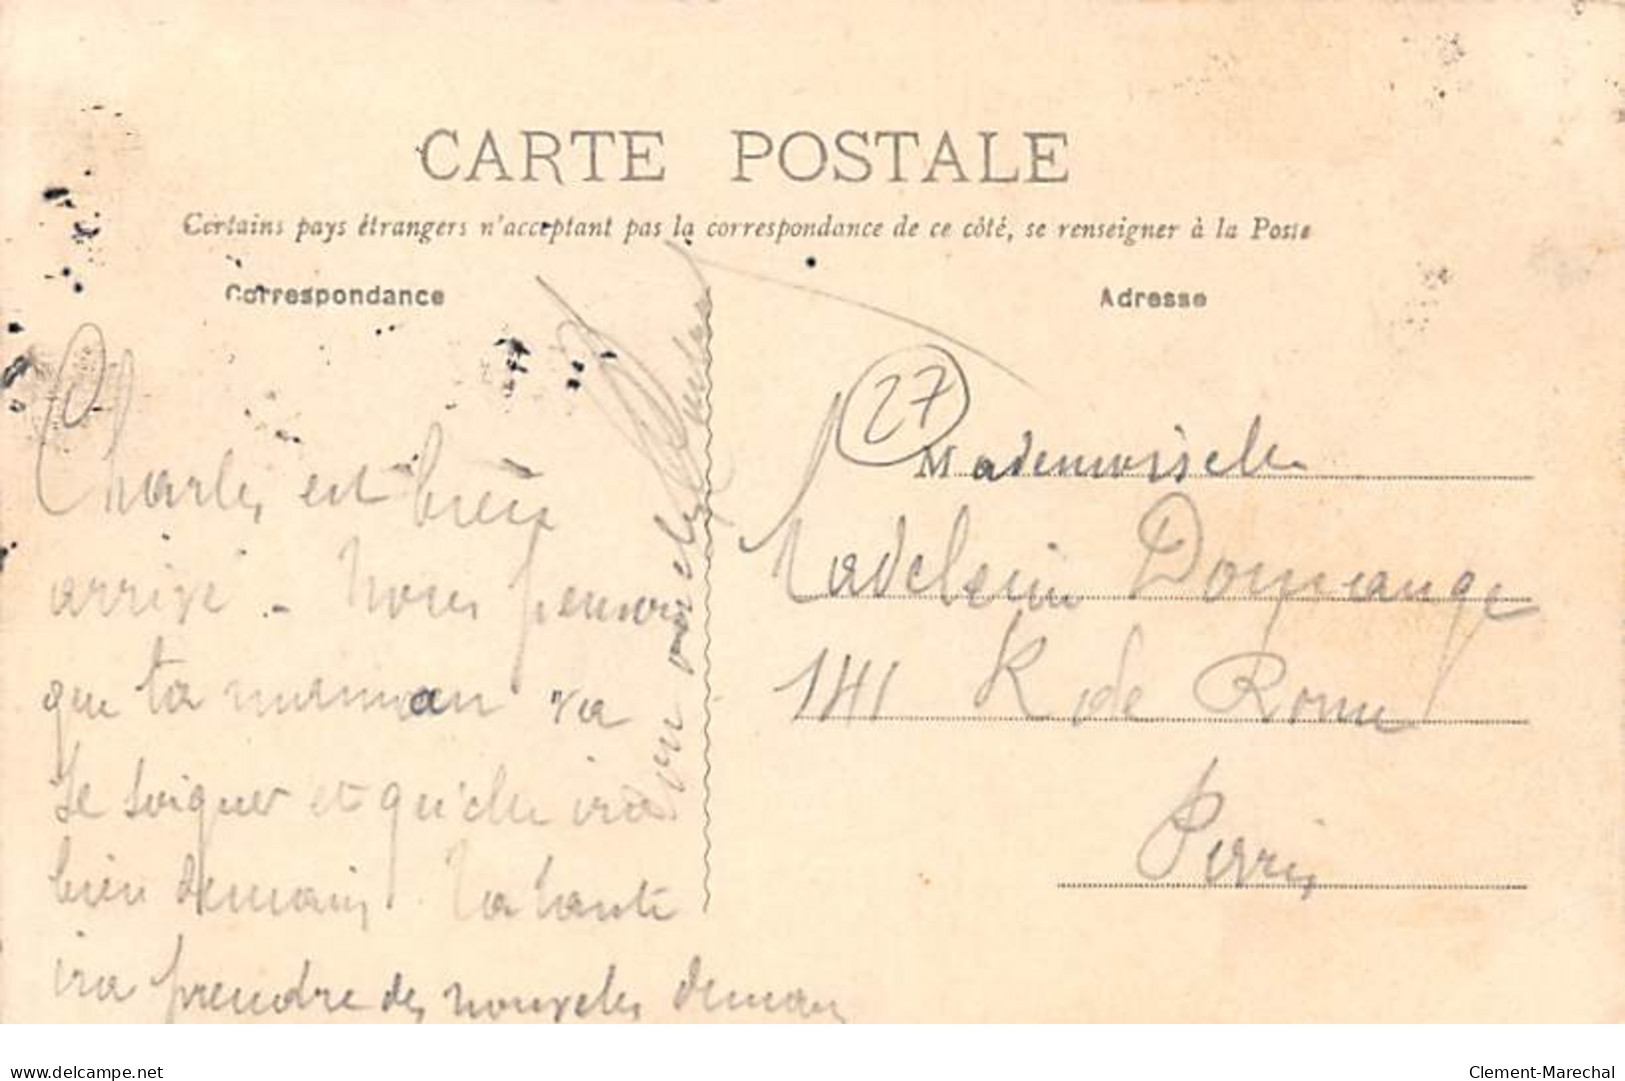 CARTE POSTALE
Certains pays étrangers n'acceptant pas la correspondance de ce côté, se renseigner à la Poste
Correspondance
Adresse
27
Charles est bien
arrivé - Nous pensons
que ta maman va
se soigner et qu'elle ira
bien demain. Ta tante
ira prendre des nouvelles demain
Mademoiselle
Madeleine Domange
141 R de Rome
Paris
www.delcampe.net
Clement-Marechal